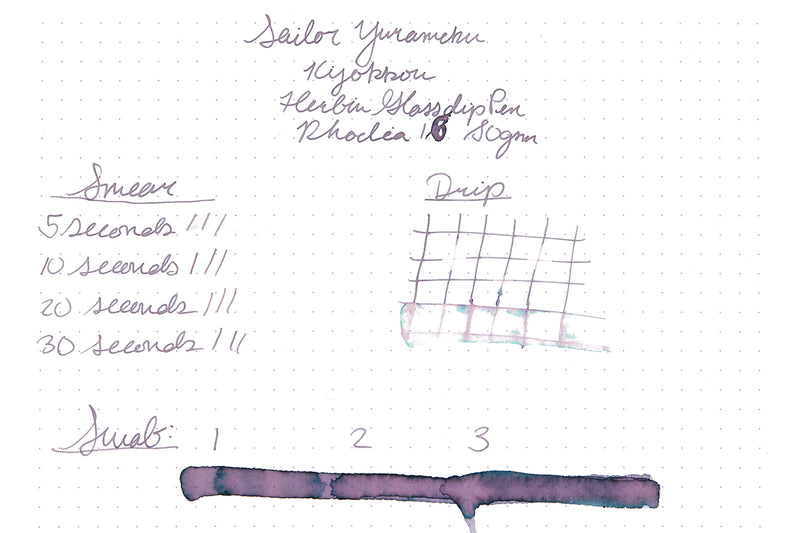 Sailor Yurameku
Kyokkou
Herbin Glass dip Pen
Rhodia 16 80gsm
Smear
5 seconds ///
10 seconds ///
20 seconds ///
30 seconds ///
Drip
Swab: 1 2 3